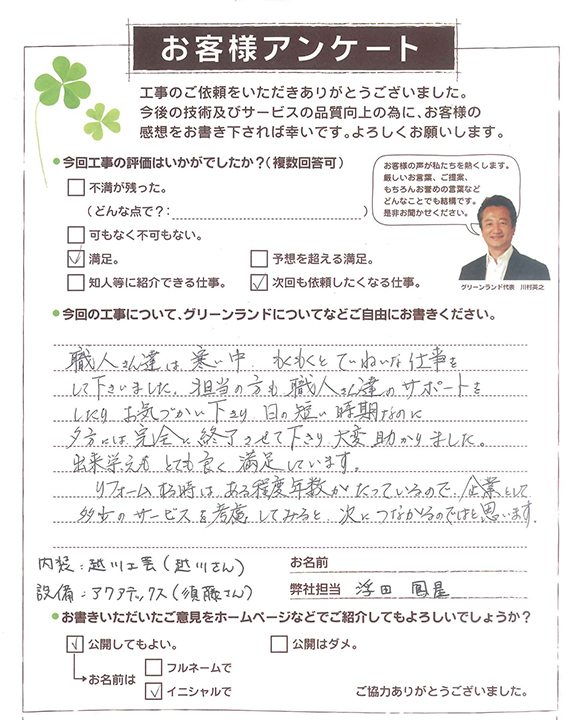 お客様アンケート
工事のご依頼をいただきありがとうございました。
今後の技術及びサービスの品質向上の為に、お客様の
感想をお書き下されば幸いです。よろしくお願いします。
●今回工事の評価はいかがでしたか？（複数回答可）
□不満が残った。
（どんな点で？： ）
□可もなく不可もない。
☑満足。 □予想を超える満足。
□知人等に紹介できる仕事。 ☑次回も依頼したくなる仕事。
お客様の声が私たちを熱くします。
厳しいお言葉、ご提案、
もちろんお誉めの言葉など
どんなことでも結構です。
是非お聞かせください。
グリーンランド代表 川村英之
●今回の工事について、グリーンランドについてなどご自由にお書きください。
職人さん達は、寒い中、もくもくとていねいな仕事を
して下さいました。担当の方も職人さん達のサポートを
したり お気づかい下さり 日の短い時期なのに
夕方には完全に終了させて下さり 大変助かりました。
出来栄えも とても良く 満足しています。
リフォームする時は、ある程度年数がたっているので、企業として
多少のサービスを考慮してみると、次につながるのではと思います。
内装：越川工芸（越川さん） お名前
設備：アクアテックス（須藤さん） 弊社担当 浮田
●お書きいただいたご意見をホームページなどでご紹介してもよろしいでしょうか？
☑公開してもよい。 □公開はダメ。
お名前は □フルネームで
☑イニシャルで
ご協力ありがとうございました。